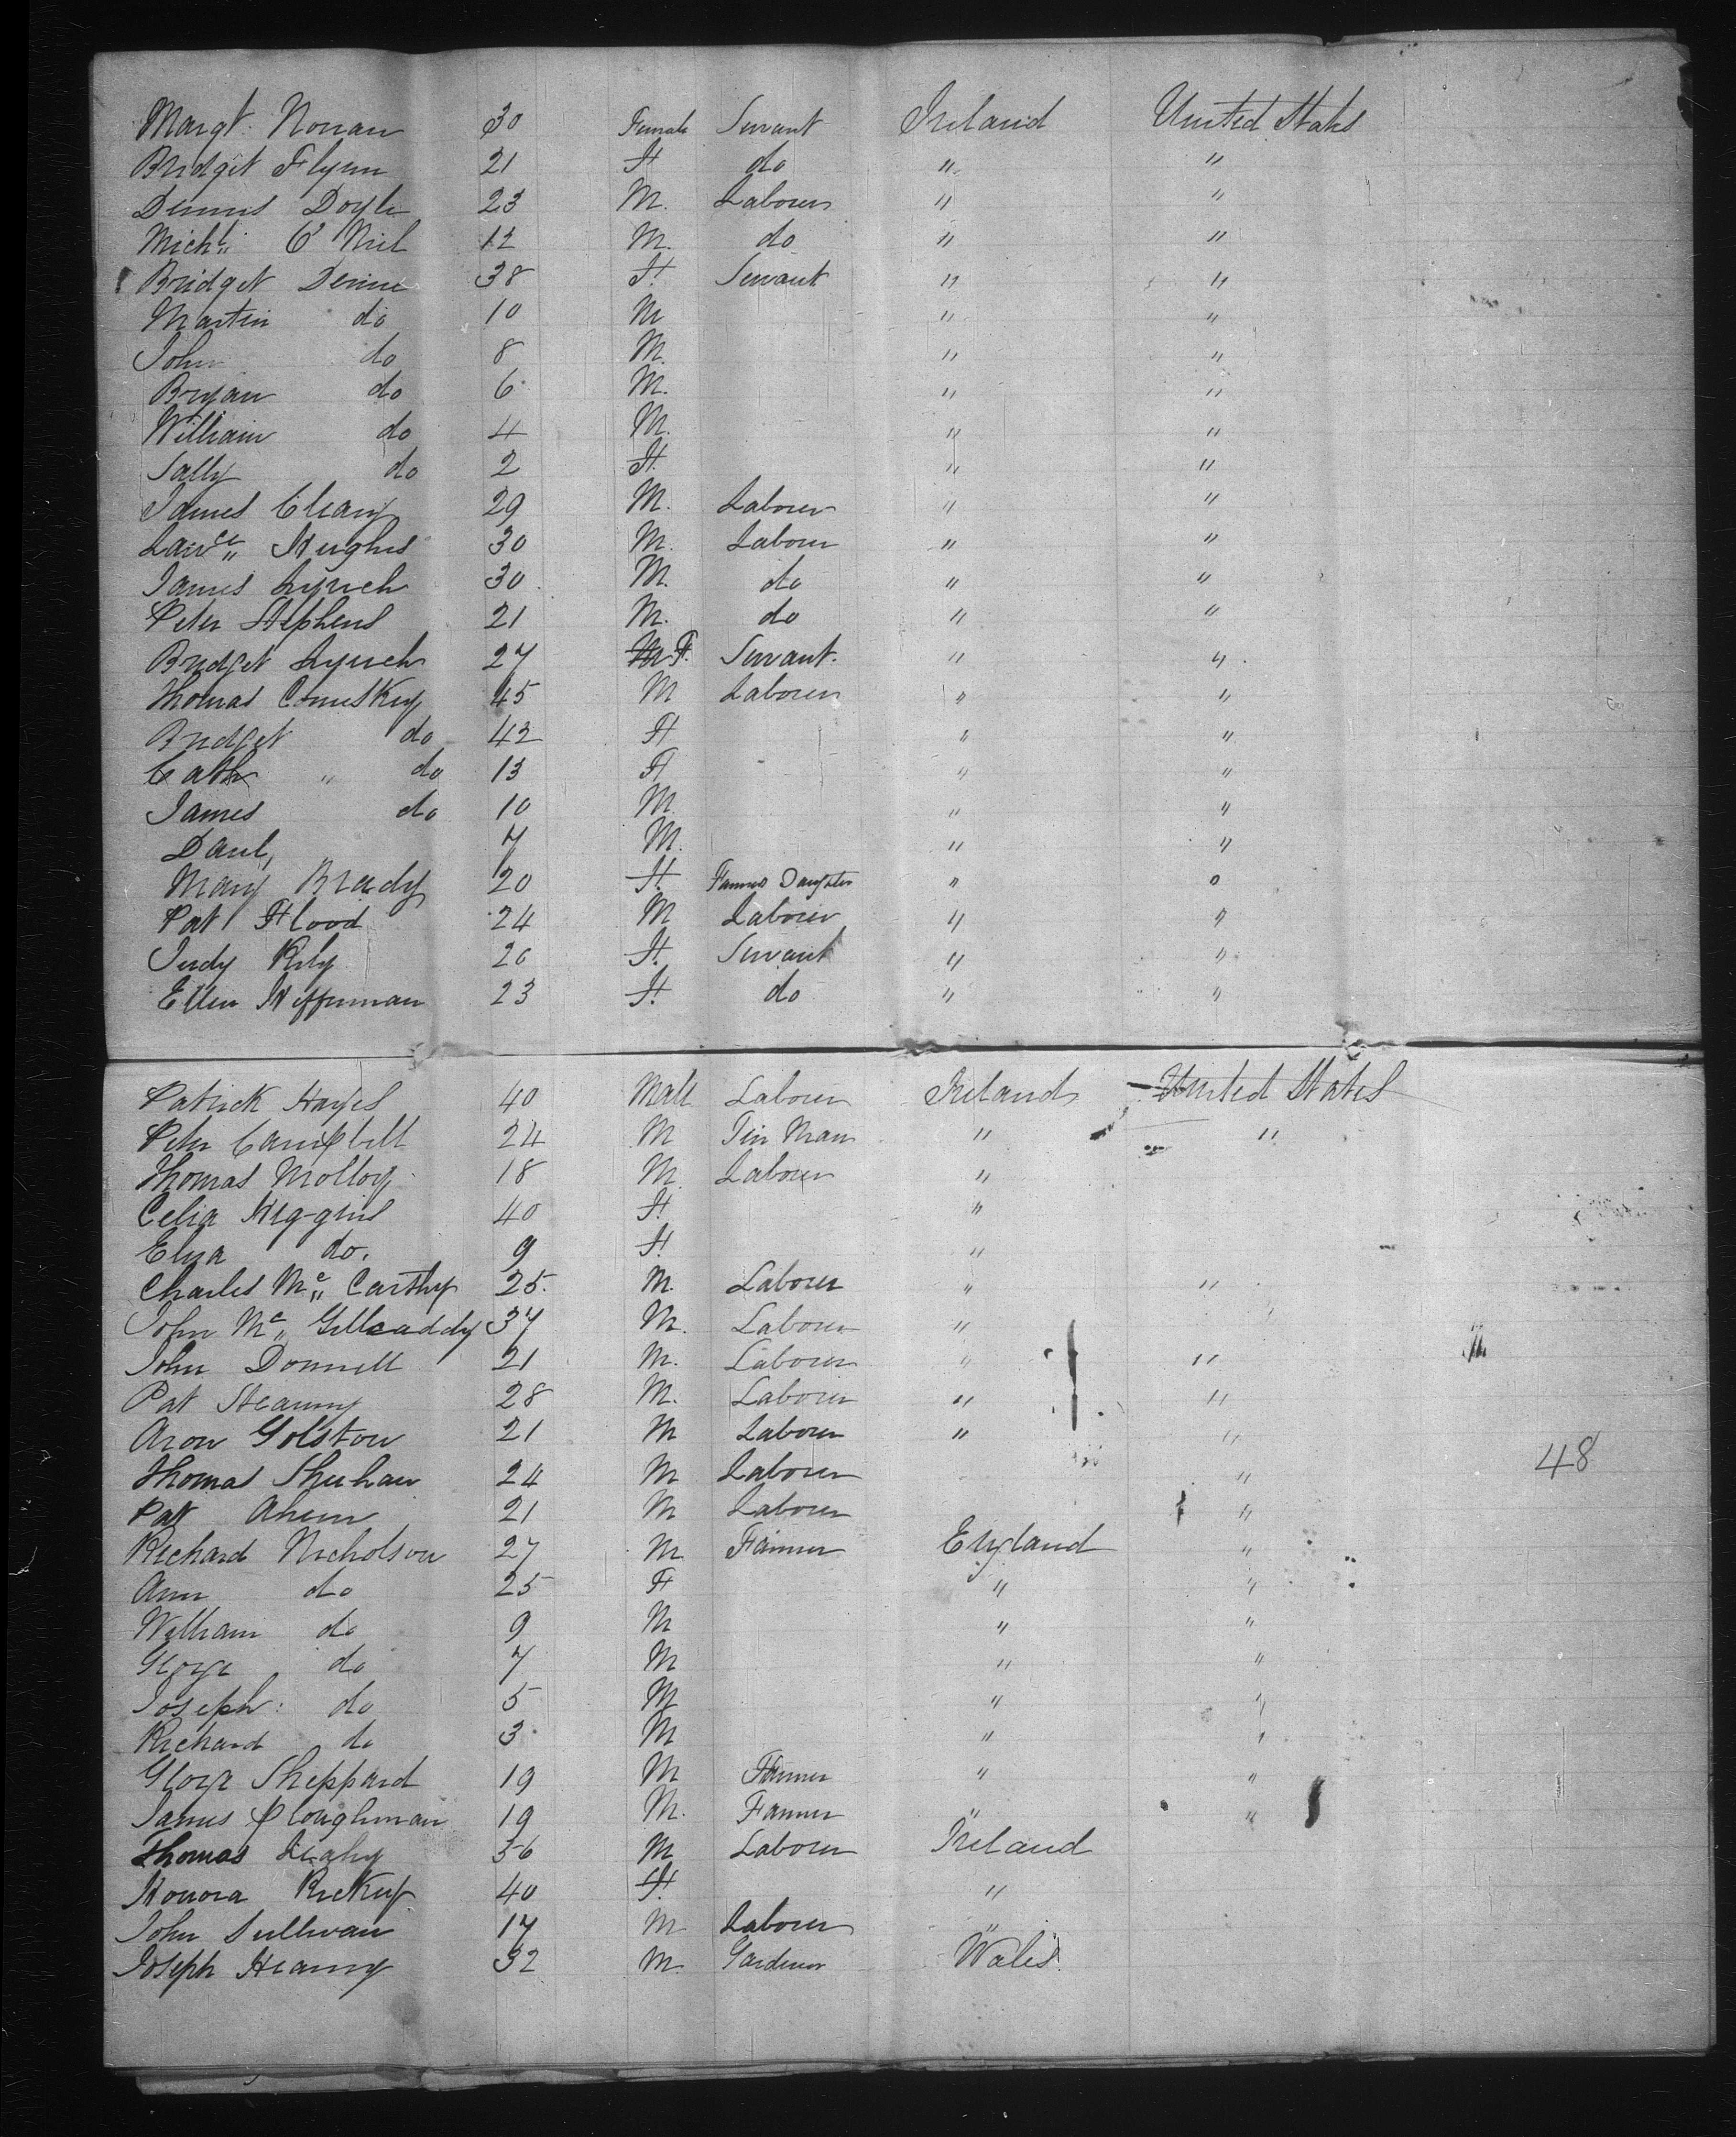 Margt. Nonan 30 Female Servant Ireland United States
Bridget Flynn 21 F. do " "
Dennis Doyle 23 M. Laborer " "
Michl. O'Neil 12 M. do " "
Bridget Denine 38 F. Servant " "
Martin do 10 M " "
John do 8 M. " "
Bryan do 6 M. " "
William do 4 M. " "
Sally do 2 F. " "
James Cleary 29 M. Laborer " "
Lawce. Hughes 30 M. Laborer " "
James Lynch 30 M. do " "
Peter Stephens 21 M. do " "
Bridget Lynch 27 F. Servant. " "
Thomas Comiskey 45 M Laborer " "
Bridget do 42 F " "
Cath " do 13 F " "
James do 10 M. " "
Danl, 7 M. " "
Mary Brady 20 F. Farmers Daughter " "
Pat Flood 24 M Laborer " "
Judy Rily 20 F. Servant " "
Ellen Heffernan 23 F. do " "
Patrick Hayes 40 Male Laborer Ireland United States
Peter Campbell 24 M Tin Man " "
Thomas Molloy 18 M. Laborer "
Celia Higgins 40 F. "
Eliza do. 9 F. "
Charles Mc. Carthy 25. M. Laborer " "
John Mc. Gillcaddy 37 M. Laborer "
John Donnell 21 M. Laborer " "
Pat Heanny 28 M. Laborer " "
Aron Golston 21 M Laborer " "
48
Thomas Sheehan 24 M Laborer "
Pat Ahern 21 M Laborer "
Richard Nicholson 27 M. Farmer England "
Ann do 25 F " "
William do 9 M " "
George do 7 M " "
Joseph do 5 M " "
Richard do 3 M " "
George Sheppard 19 M Farmer " "
James Ploughman 19 M. Farmer " "
Thomas Leahy 36 M Laborer Ireland
Honora Rickey 40 F. "
John Sullivan 17 M Laborer "
Joseph Heanny 32 M. Gardener Wales